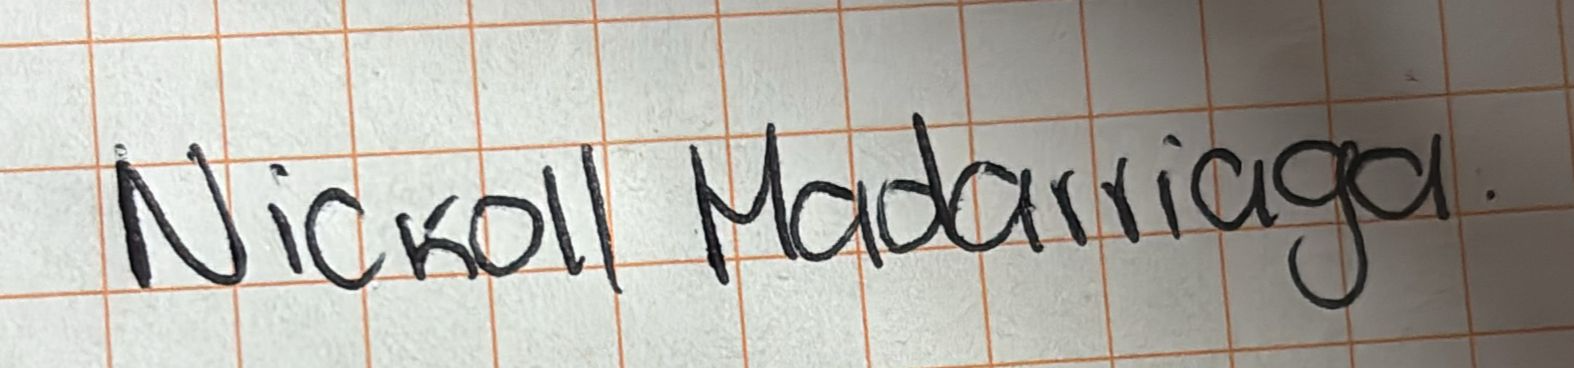 Nickoll Madarriaga.